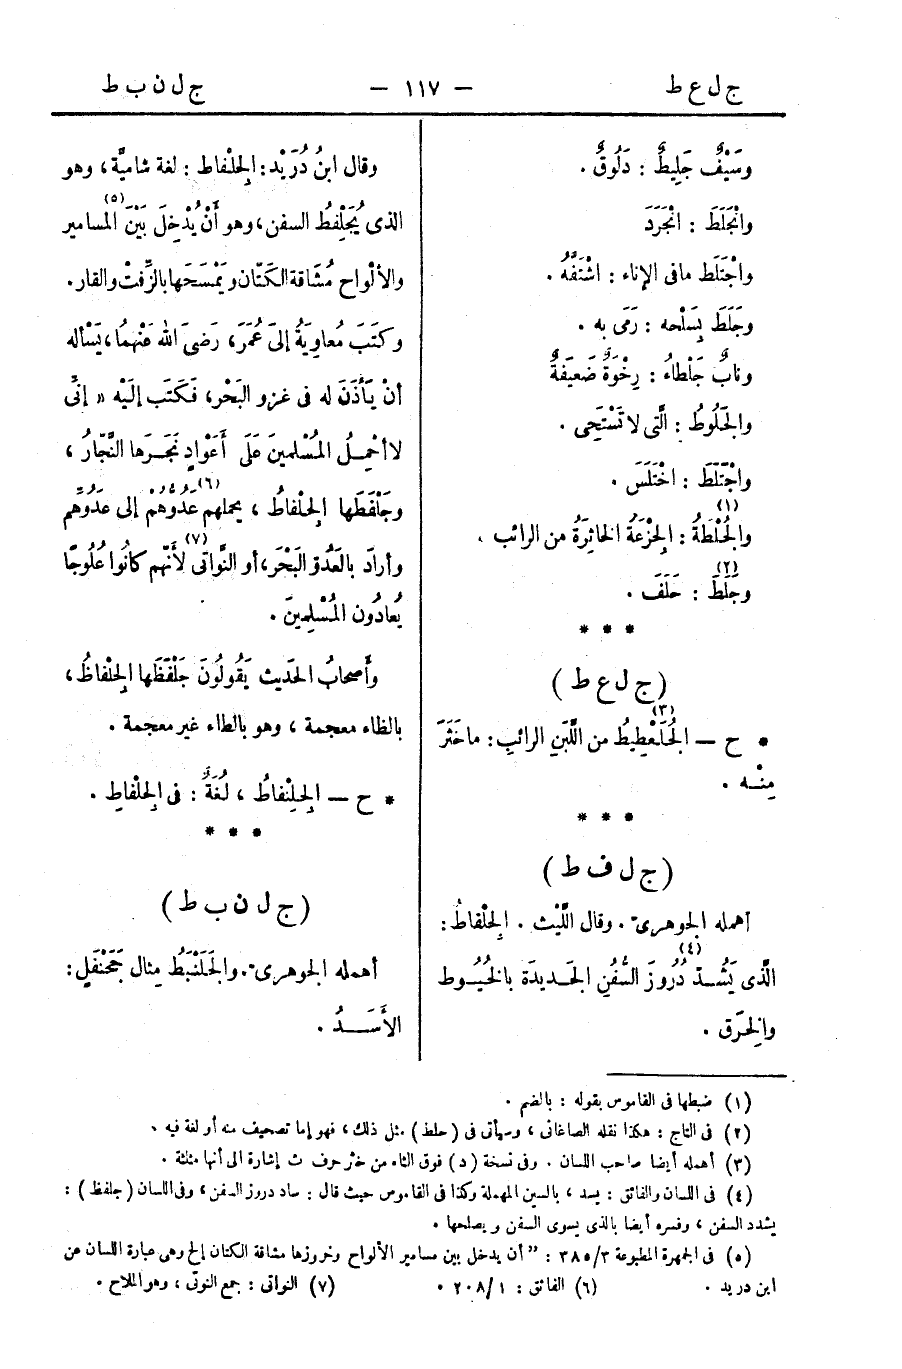 ج ل ع ط — ١١٧ — ج ل ن ب ط
وسَيْفٌ جَلِيطٌ : دَلُوقٌ .
وانْجَلَطَ : انْجَرَدَ
واجْتَلَط مافى الإناء : اشْتَفَّهُ .
وجَلَطَ بِسَلْحه : رَمَى به .
ونابٌ جَلْطاءُ : رِخْوَةٌ ضَعيفَةٌ
والجَلُوطُ : الَّتى لا تَسْتَحِى .
واجْتَلَطَ : اخْتَلَسَ .
والجُلْطَةُ (١) : الجِزْعَةُ الخاثِرَةُ من الرائب .
وجَلَطَ (٢) : حَلَفَ .
* * *
(ج ل ع ط)
* ح — الجُلَعْطِيطُ (٣) من اللَّبَنِ الرائبِ : ماخَثَرَ
مِنْـه .
* * *
(ج ل ف ط)
أهمله الجوهرىّ . وقال اللَّيْث . الجِلْفاطُ :
الَّذى يَشُـدّ (٤) دُرُوزَ السُّفُنِ الجَـديدَة بالخُيُـوط
والخِرَق .
وقال ابنُ دُرَيْد : الجِلْفاط : لغة شاميَّة ، وهو
الذى يُجَلْفِطُ السفن ، وهو أَنْ يُدْخِلَ بَيْنَ (٥) المسامير
والألْواح مُشَاقة الكَتّان ويَمْسَحَها بالزِّفْتْ والقار .
وكَتَبَ مُعاوِيَةُ إلىَ عُمَرَ ، رَضىَ الله عَنْهمُا ، يَسْأله
أنْ يَأْذَنَ له فى غزو البَحْر ، فَكَتَب إليْه « إنِّى
لا أحْمِـلُ المُسْلمينَ عَلَى أَعْوادٍ نَجَـرَها النَّجّارُ ،
وجَلْفَطَها الجِلْفاطُ ، يحملهم عَدُوُّهُمْ (٦) إلى عَدُوِّهِم
وأرادَ بالعَدُوّ البَحْرَ ، أو النَّواتىَ (٧) لأنّهم كانُوا عُلُوجًا
يُعادُون المُسْلِمينَ .
وأَصْحابُ الحَديث يَقُولُونَ جَلْفَظَها الجِلْفاظُ ،
بالظاء معجمة ، وهو بالطاء غير معجمة .
* ح — الجِـلِنْفاطُ ، لُغَةٌ : فى الجِلْفاطِ .
* * *
(ج ل ن ب ط)
أهمله الجوهرىّ . والجَلَنْبَطُ مثال جَحَنْفَلٍ :
الأَسَـــدُ .
(١) ضبطها فى القاموس بقوله : بالضم .
(٢) فى التاج : هكذا نقله الصاغانى ، وسيأتى فى (حلط) مثل ذلك ، فهو إما تصحيف منه أو لغة فيه .
(٣) أهمله أيضا صاحب اللسان . وفى نسخة (د) فوق الثاء من خثر حرف ث إشارة الى أنها مثلثة .
(٤) فى اللسان والفائق : يسد ، بالسين المهملة وكذا فى القاموس حيث قال : ساد دروز السفن ، وفى اللسان (جلفظ) :
يشدد السفن ، وفسره أيضا بالذى يسوى السفن ويصلحها .
(٥) فى الجمهرة المطبوعة ٣/٣٨٥ : "أن يدخل بين مسامير الألواح وخروزها مشاقة الكتان إلخ وهى عبارة اللسان عن
ابن دريد . (٦) الفائق : ١/٢٠٨ . (٧) النواتى : جمع النوتى ، وهو الملاح .